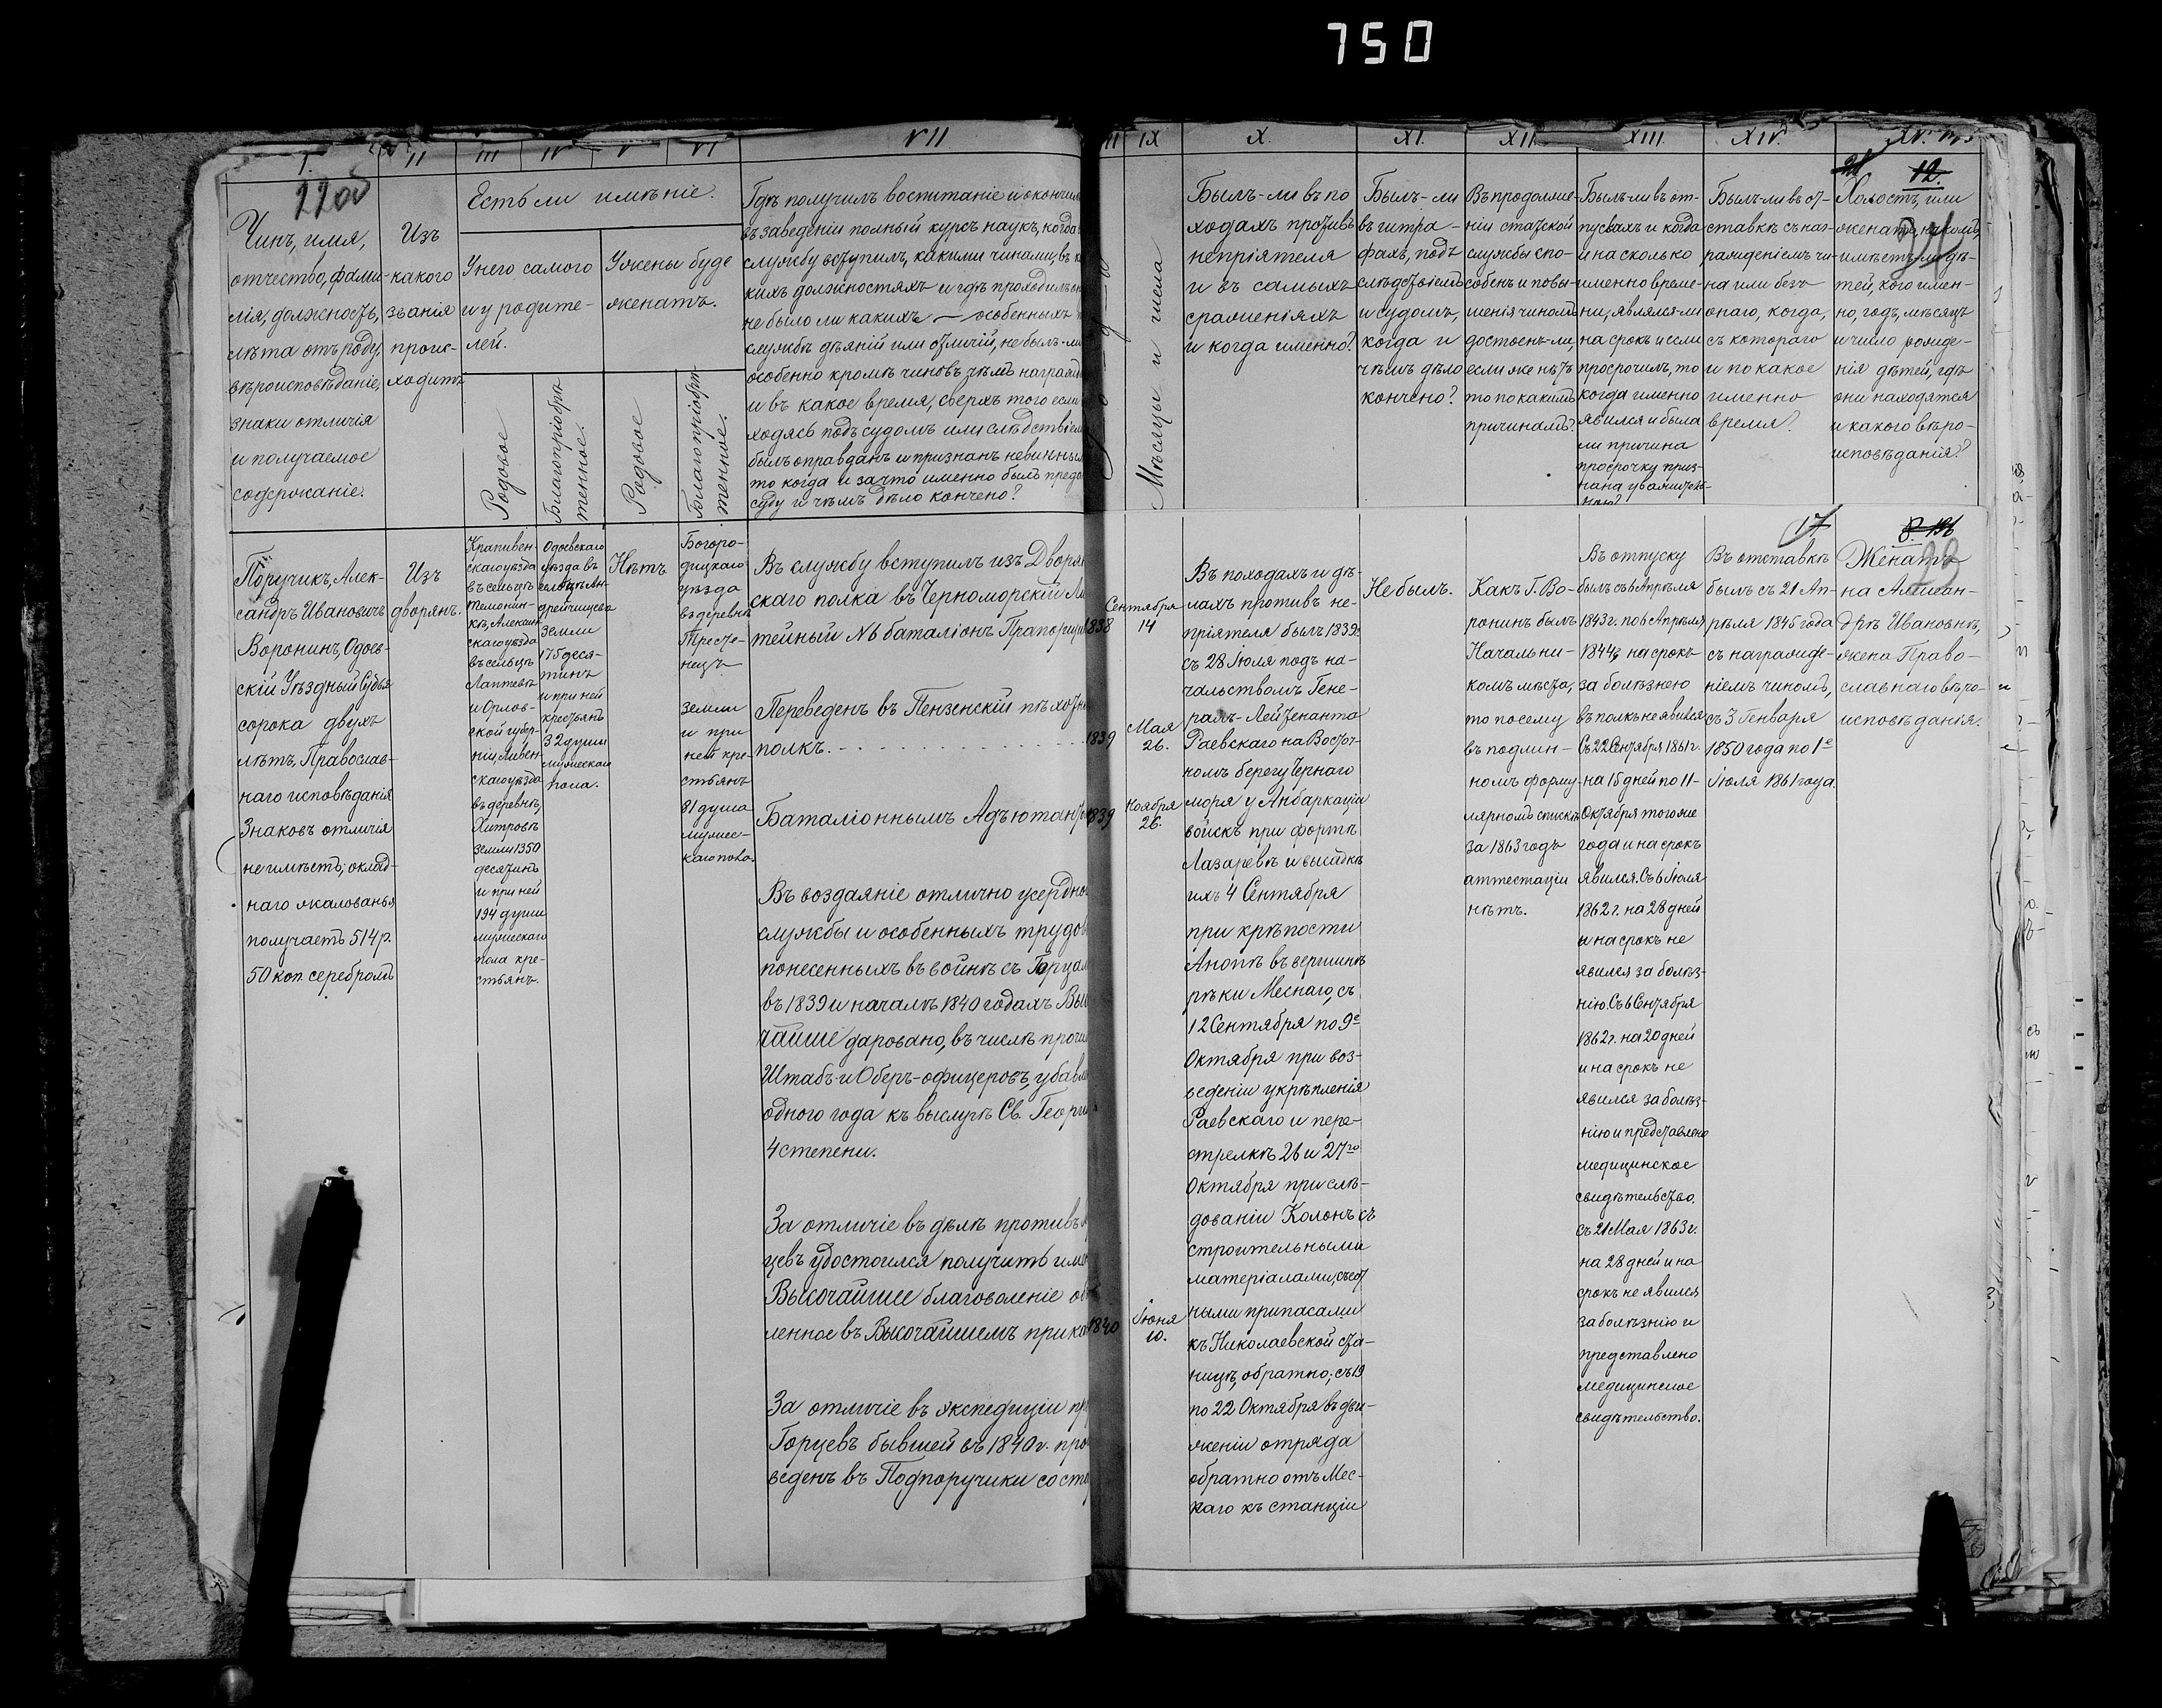 750
I.
II
III
IV
V
VI
VII
IX
X.
XI.
XII.
XIII.
XIV.
XV.
22об
12.
Чинъ, имя,
отчество, фами-
лія, должность,
лѣта отъ роду,
вѣроисповѣданіе,
знаки отличія
и получаемое
содержаніе.
Изъ
какого
званія
проис-
ходитъ
Есть ли имѣніе.
У него самого
и у родите-
лей.
У жены буде
женатъ.
Родовое
Благопріобрѣ-
тенное.
Родовое
Благопріобрѣ-
тенное.
Гдѣ получилъ воспитаніе и окончилъ
въ заведеніи полный курсъ наукъ, когда въ
службу вступилъ, какими чинами, въ ка
кихъ должностяхъ и гдѣ проходилъ он
не было ли какихъ — особенныхъ п
службѣ дѣяній или отличій, не былъ-ли
особенно кромѣ чиновъ чѣмъ награжд
и въ какое время, сверхъ того если
ходясь подъ судомъ или слѣдствіем
былъ оправданъ и признанъ невинным
то когда и за что именно былъ преда
суду и чѣмъ дѣло кончено?
Мѣсяцы и числа
Былъ-ли въ по
ходахъ противъ
непріятеля
и въ самыхъ
сраженіяхъ
и когда именно?
Былъ-ли
въ штра-
фахъ, подъ
слѣдствіемъ
и судомъ,
когда и
чѣмъ дѣло
кончено?
Въ продолже-
ніи статской
службы спо-
собенъ и повы-
шенія чиномъ
достоенъ-ли,
если же нѣтъ
то по какимъ
причинамъ?
Былъ-ли въ от-
пускахъ и когда
и на сколько
именно време-
ни, являлся-ли
на срокъ и если
просрочилъ, то
когда именно
явился и была
ли причина
просрочку приз-
нана уважитель-
ною?
Былъ-ли въ от-
ставкѣ съ наг-
ражденіемъ чи-
на или безъ
онаго, когда,
съ котораго
и по какое
именно
время?
Холостъ, или
женатъ, на комъ,
имѣетъ ли дѣ-
тей, кого имен-
но, годъ, мѣсяцъ
и число рожде-
нія дѣтей, гдѣ
они находятся
и какого вѣро-
исповѣданія?
Поручикъ, Алек-
сандръ Ивановичъ
Воронинъ, Одоев-
скій Уѣздный Судья
сорока двухъ
лѣтъ, Православ-
наго исповѣданія
Знаковъ отличія
не имѣетъ; оклад-
наго жалованья
получаетъ 514 р.
50 коп. серебромъ
Изъ
дворянъ.
Крапивен-
скаго уѣзда
въ сельцѣ
кѣ, Алексин-
скаго уѣзда
въ сельцѣ
Лаптевѣ
и Орлов-
ской губер-
ніи, Ливен-
скаго уѣзда
въ деревнѣ
Хитровѣ
земли 1350
десятинъ
и при ней
194 души
мужескаго
пола кре-
стьянъ.
Одоевскаго
уѣзда въ
земли
175 деся-
тинъ
и при ней
крестьянъ
32 души
мужескаго
пола.
Нѣтъ
Богоро-
дицкаго
уѣзда
въ деревнѣ
земли
и при
ней кре-
стьянъ
81 душа
мужес-
каго пола.
Въ службу вступилъ изъ Дворян
скаго полка въ Черноморскій Ли
тейный № 6 баталіонъ Прапорщик
1838
Сентября
14
Переведенъ въ Пензенскій пѣхотн
полкъ.
1839
Мая
26.
Баталіоннымъ Адъютант
1839
Ноября
26.
Въ воздаяніе отлично усердно
службы и особенныхъ трудов
понесенныхъ въ войнѣ съ Горцам
въ 1839 и началѣ 1840 годахъ Выс
чайше даровано, въ числѣ прочи
Штабъ и Оберъ-офицеровъ, убавл
одного года къ выслугѣ Св. Георгі
4 степени.
За отличіе въ дѣлѣ противъ
цевъ удостоился получить имян
Высочайшее благоволеніе объ
ленное въ Высочайшемъ прика
1840
Іюня
10.
За отличіе въ экспедиціи пр
Горцевъ бывшей въ 1840 г. про
веденъ въ Подпоручики со ста
Въ походахъ и дѣ-
лахъ противъ не-
пріятеля былъ 1839 г.
съ 28 Іюля подъ на-
чальствомъ Гене-
ралъ-Лейтенанта
Раевскаго на Восточ-
номъ берегу Чернаго
моря у Анбаркаціи
войскъ при фортѣ
Лазаревѣ и высадкѣ
ихъ 4 Сентября
при крѣпости
Анопѣ въ вершинѣ
рѣки Меснаго, съ
12 Сентября по 9е
Октября при воз-
веденіи укрѣпленія
Раевскаго и пере-
стрелкѣ 26 и 27го
Октября при слѣ-
дованіи Колонъ съ
строительными
матеріалами, съест
ными припасами
къ Николаевской ста-
ницѣ, обратно; съ 19
по 22 Октября въ дви-
женіи отряда
обратно отъ Мес-
каго къ станціи
Не былъ.
Какъ Г. Во-
ронинъ былъ
Начальни-
комъ мѣста,
то посему
въ подлин-
номъ форму-
лярномъ спискѣ
за 1863 годъ
аттестаціи
нѣтъ.
Въ отпуску
былъ съ 6 Апрѣля
1843 г. по 6 Апрѣля
1844 г. на срокъ
за болѣзнею
въ полкъ не явился
Съ 22 Сентября 1861 г.
на 15 дней по 11-
Октября того же
года и на срокъ
явился. Съ 6 Іюля
1862 г. на 28 дней
и на срокъ не
явился за болѣз-
нію. Съ 6 Сентября
1862 г. на 20 дней
и на срокъ не
явился за болѣз-
нію и представлено
медицинское
свидѣтельство.
съ 21 Мая 1863 г.
на 28 дней и на
срокъ не явился
за болѣзнію и
представлено
медицинское
свидѣтельство.
17
Въ отставкѣ
былъ съ 21 Ап-
рѣля 1845 года
съ награжде-
ніемъ чиномъ,
съ 3 Генваря
1850 года по 1е
Іюля 1861 года.
Женатъ
на Алексан-
дрѣ Ивановнѣ,
жена Право-
славнаго вѣро-
исповѣданія.